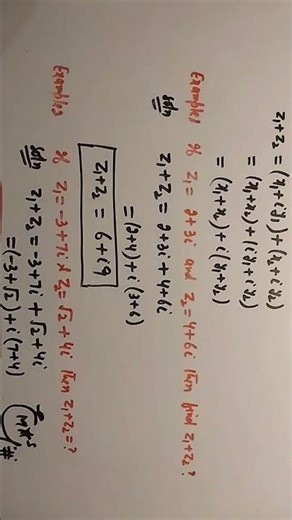 z₁+z₂ = (x₁+iy₁) + (x₂+iy₂)
= (x₁+x₂) + (iy₁+iy₂)
= (x₁+x₂) + i(y₁+y₂)
Example % z₁ = 2+3i and z₂ = 4+6i then find z₁+z₂?
soln z₁+z₂ = 2+3i+4+6i
= (2+4) + i(3+6)
z₁+z₂ = 6+i9
Examples % z₁ = -3+7i & z₂ = √2+4i then z₁+z₂=?
soln z₁+z₂ = -3+7i + √2+4i
= (-3+√2) + i(7+4)